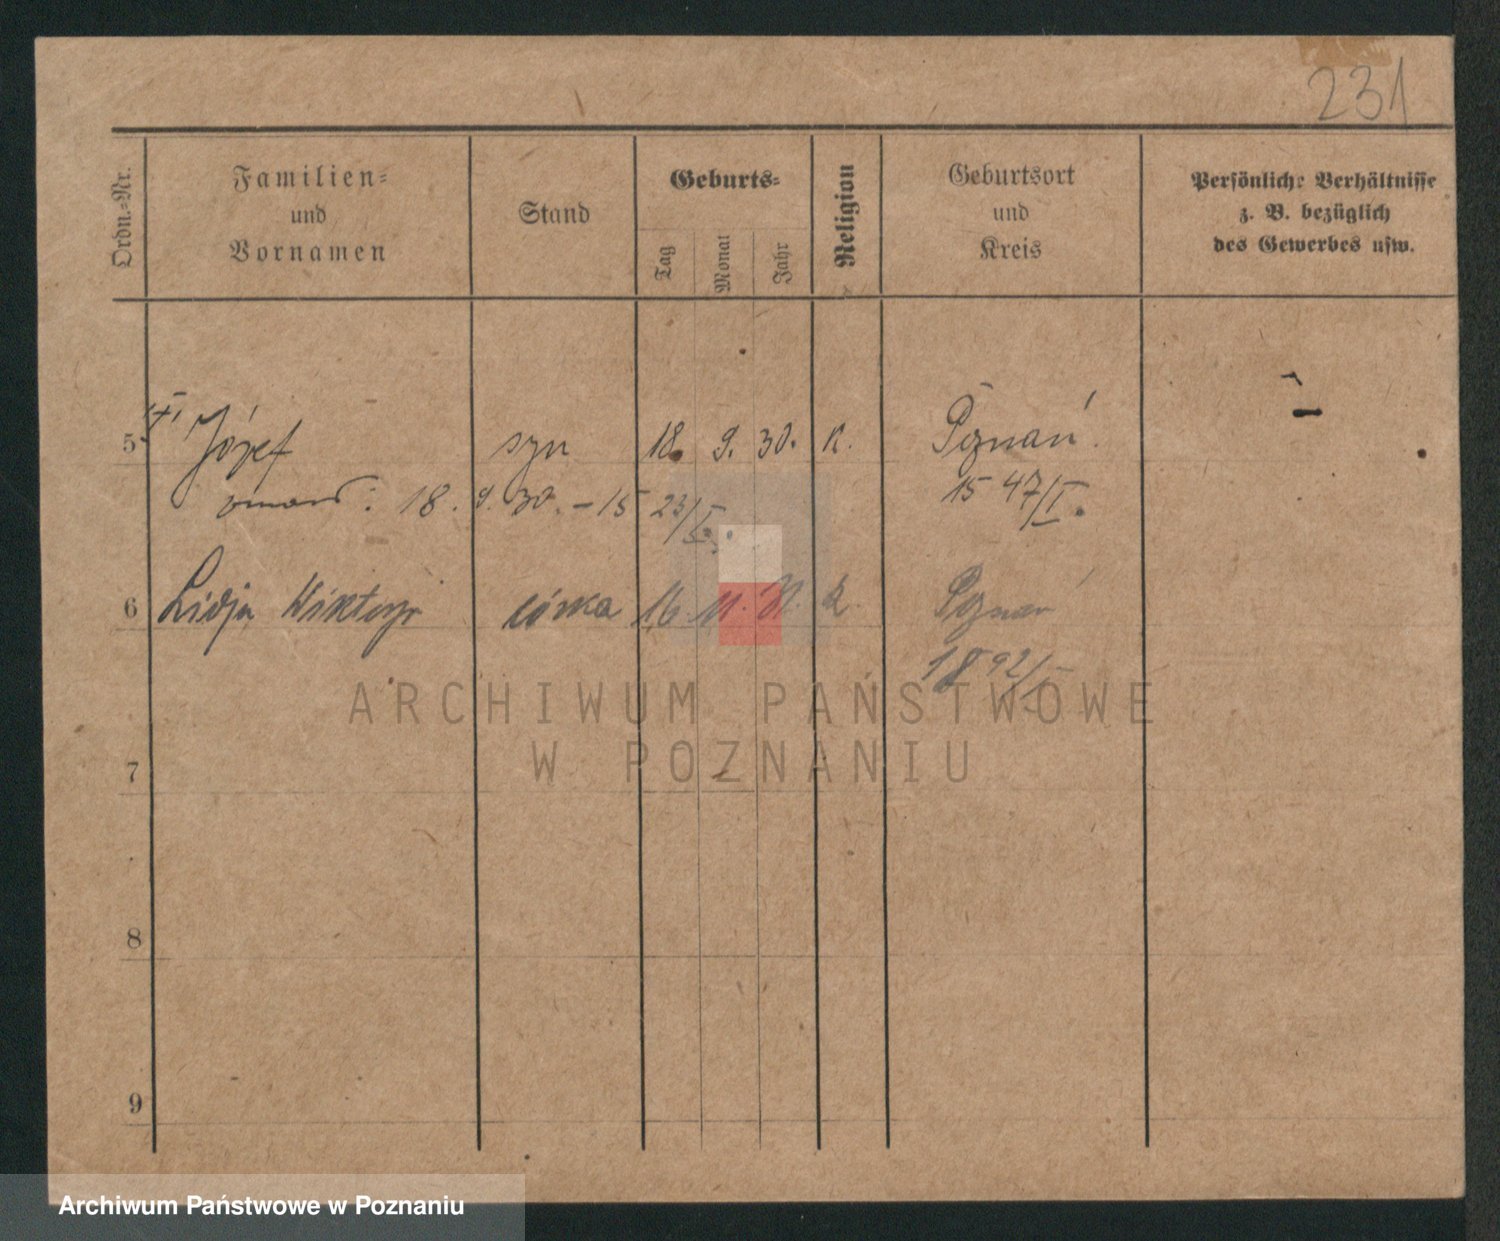 231
Ordn.-Nr.
Familien-
und
Vornamen
Stand
Geburts-
Tag
Monat
Jahr
Religion
Geburtsort
und
Kreis
Persönliche Verhältnisse
z. B. bezüglich
des Gewerbes usw.
5 Józef syn 18. 9. 30. K. Poznań.
18. 9. 30. – 15 23/I. 15 47/I.
6 Lidja córka 16. 11. K. Poznań
1892/I
7
8
9
ARCHIWUM PAŃSTWOWE
W POZNANIU
Archiwum Państwowe w Poznaniu